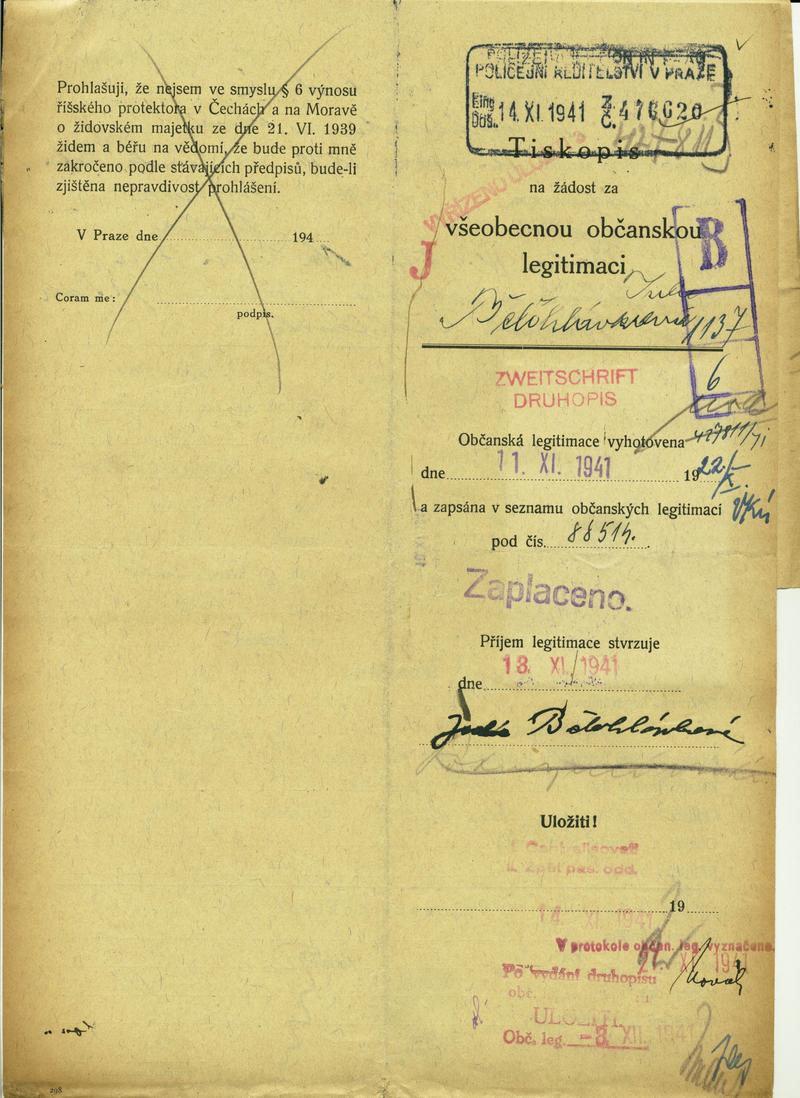 Prohlašuji, že nejsem ve smyslu § 6 výnosu
říšského protektora v Čechách a na Moravě
o židovském majetku ze dne 21. VI. 1939
židem a béřu na vědomí, že bude proti mně
zakročeno podle stávajících předpisů, bude-li
zjištěna nepravdivost prohlášení.
V Praze dne 194
Coram me:
podpis.
298
POLICEJNÍ ŘEDITELSTVÍ V PRAZE
14. XI. 1941 Č. 476620
Tiskopis
na žádost za
všeobecnou občanskou
legitimaci
J
B
Bělohlávková
1137
6
ZWEITSCHRIFT
DRUHOPIS
Občanská legitimace vyhotovena
dne 11. XI. 1941 19
a zapsána v seznamu občanských legitimací
pod čís. 88514.
Zaplaceno.
Příjem legitimace stvrzuje
dne 13. XI. 1941
Julie Bělohlávková
Uložiti!
14 XI. 1941 19
V protokole občan. leg. vyznačeno.
XI. 1941
Po vydání druhopisu
obč.
ULOŽITI.
Obč. leg. -3. XII. 1941